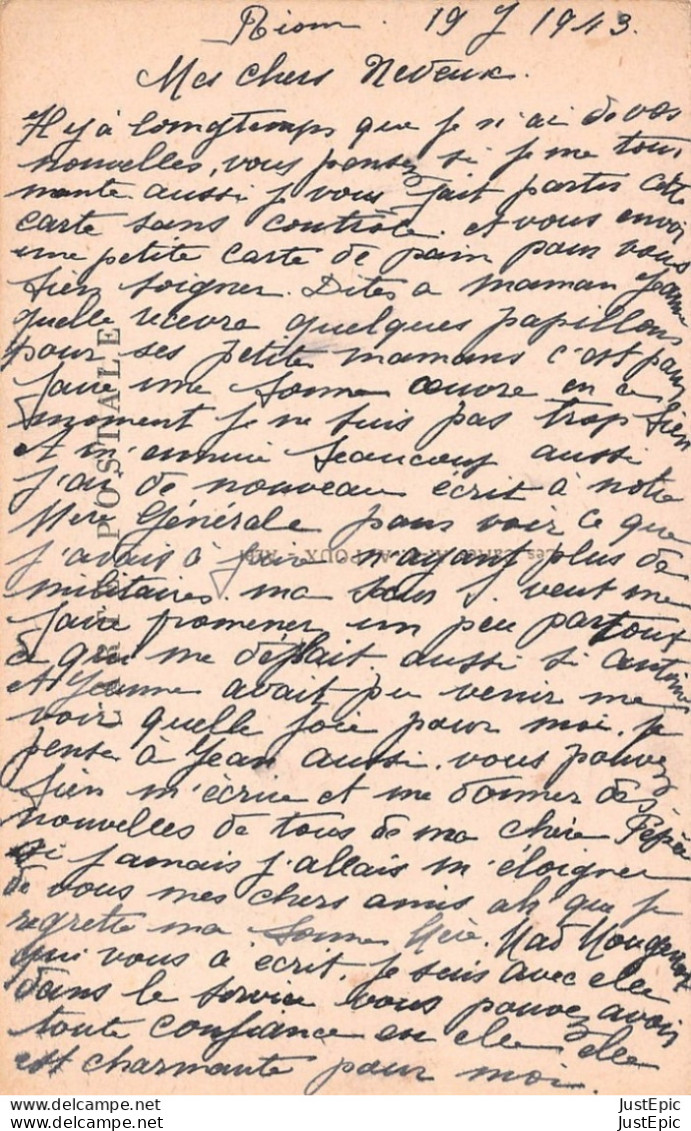 Riom. 19 J 1943.
Mes chers Neveux.
Il y a longtemps que je n'ai de vos
nouvelles, vous pensez si je me tour
mente aussi je vous fait partir cette
carte sans contrôle. et vous envoi
une petite carte de pain pour vous
bien soigner. Dites a maman Jeanne
quelle recevra quelques papillons
pour ses petite mamans c'est pour
faire une bonne œuvre en ce
moment je ne suis pas trop bien
et m'ennuie beaucoup aussi
j'ai de nouveau écrit à notre
Mère Générale pour voir ce que
j'avais à faire n'ayant plus de
militaires. ma sœur S. veut me
faire promener un peu partout
ce qui me déplait aussi si
et Jeanne avait pu venir me
voir quelle joie pour moi. je
pense à Jean aussi. vous pouvez
bien m'écrire et me donner des
nouvelles de tous de ma chère Pépée
si jamais j'allais m'éloigner
de vous mes chers amis ah que je
regrette ma bonne Mère. Mad
qui vous a écrit. je suis avec elle
dans le service vous pouvez avoir
toute confiance en elle elle
est charmante pour moi.
CARTE POSTALE
JustEpic
JustEpic